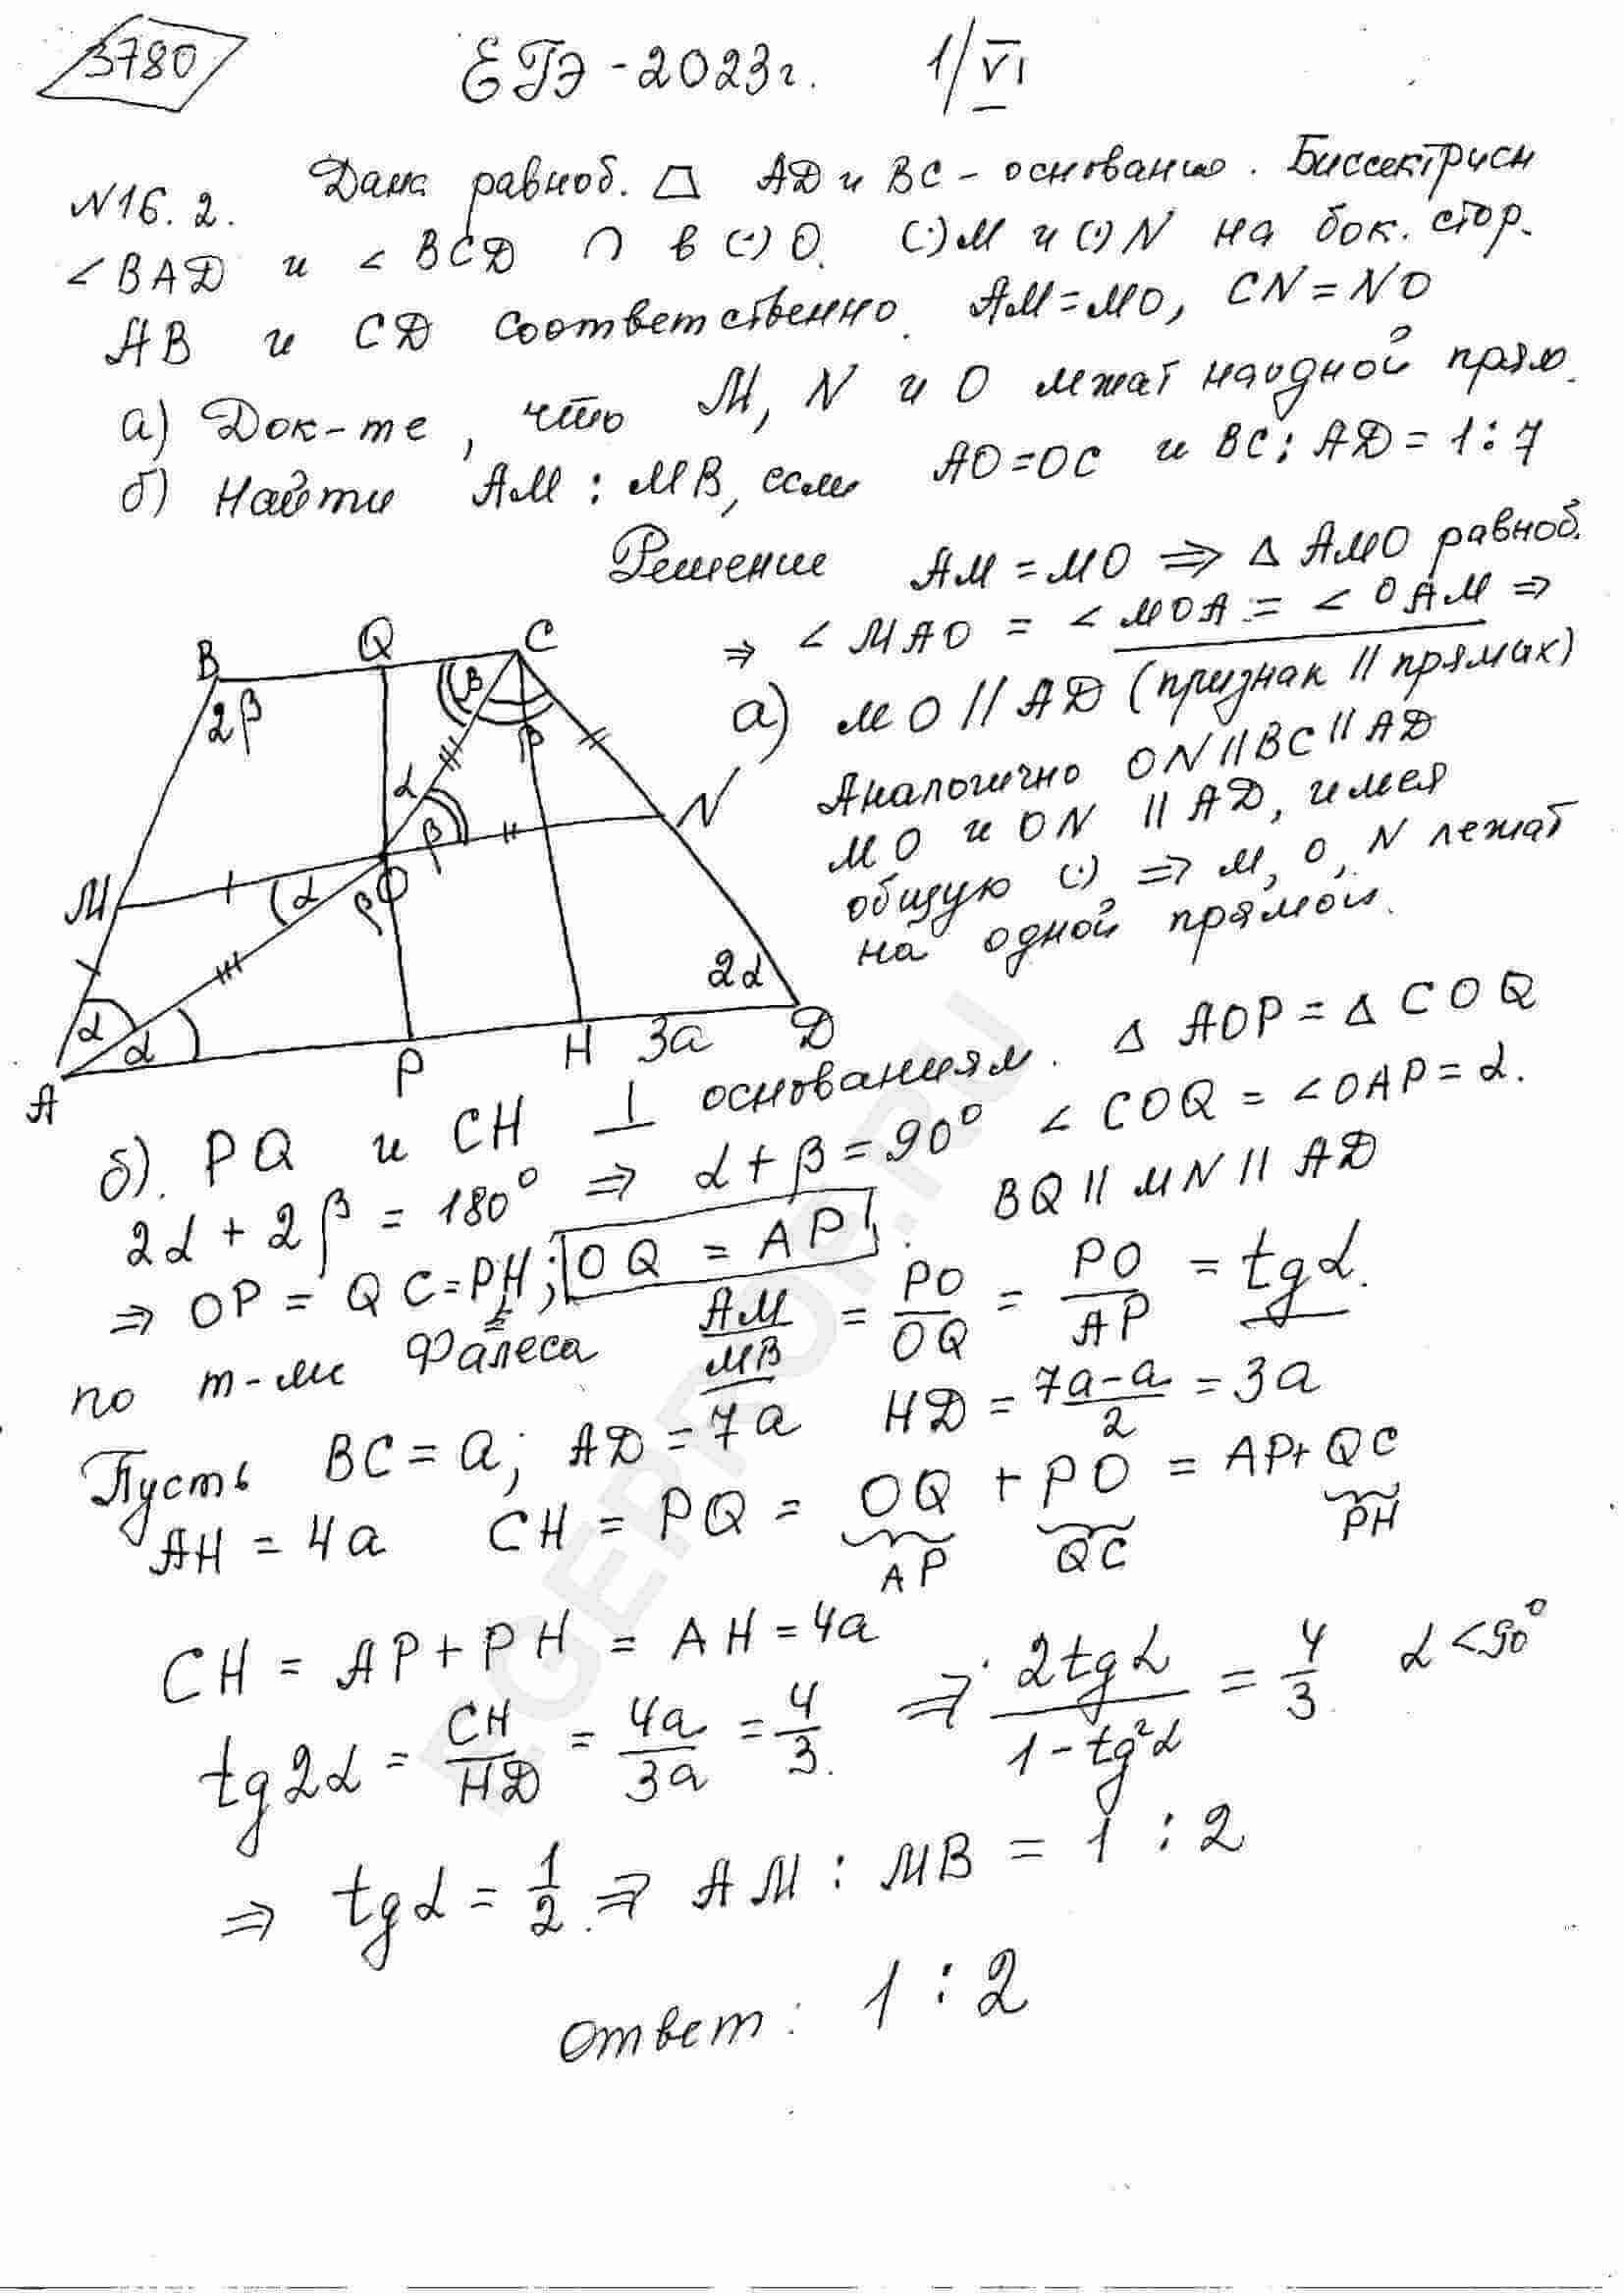 3780 ЕГЭ-2023г. 1/VI
N16.2. Дана равноб. AD и BC - основание. Биссектрисы
∠BAD и ∠BCD ∩ в (·) O. (·)M и (·)N на бок. стор.
AB и CD соответственно. AM=MO, CN=NO
а) Док-те, что M, N и O лежат на одной прям.
б) Найти AM : MB, если AO=OC и BC:AD=1:7
Решение AM=MO ⇒ △AMO равноб.
⇒ ∠MAO = ∠MOA = ∠OAM ⇒
а) MO∥AD (признак ∥ прямых)
Аналогично ON∥BC∥AD
MO и ON ∥ AD, имея
общую (·) ⇒ M, O, N лежат
на одной прямой.
B Q C
2β β β
α β N
M α O β
2α
α α
A P H 3a D
б). PQ и CH ⊥ основаниям. △AOP = △COQ
2α + 2β = 180° ⇒ α + β = 90° ∠COQ = ∠OAP = α.
⇒ OP = QC = PH; OQ = AP. BQ∥MN∥AD
по т-ме Фалеса AM/MB = PO/OQ = PO/AP = tgα.
Пусть BC = a; AD = 7a HD = (7a-a)/2 = 3a
AH = 4a CH = PQ = OQ + PO = AP + QC
AP QC PH
CH = AP + PH = AH = 4a
tg2α = CH/HD = 4a/3a = 4/3. ⇒ 2tgα/(1-tg²α) = 4/3 α<90°
⇒ tgα = 1/2. ⇒ AM : MB = 1 : 2
ответ: 1 : 2
EGEPROF.RU